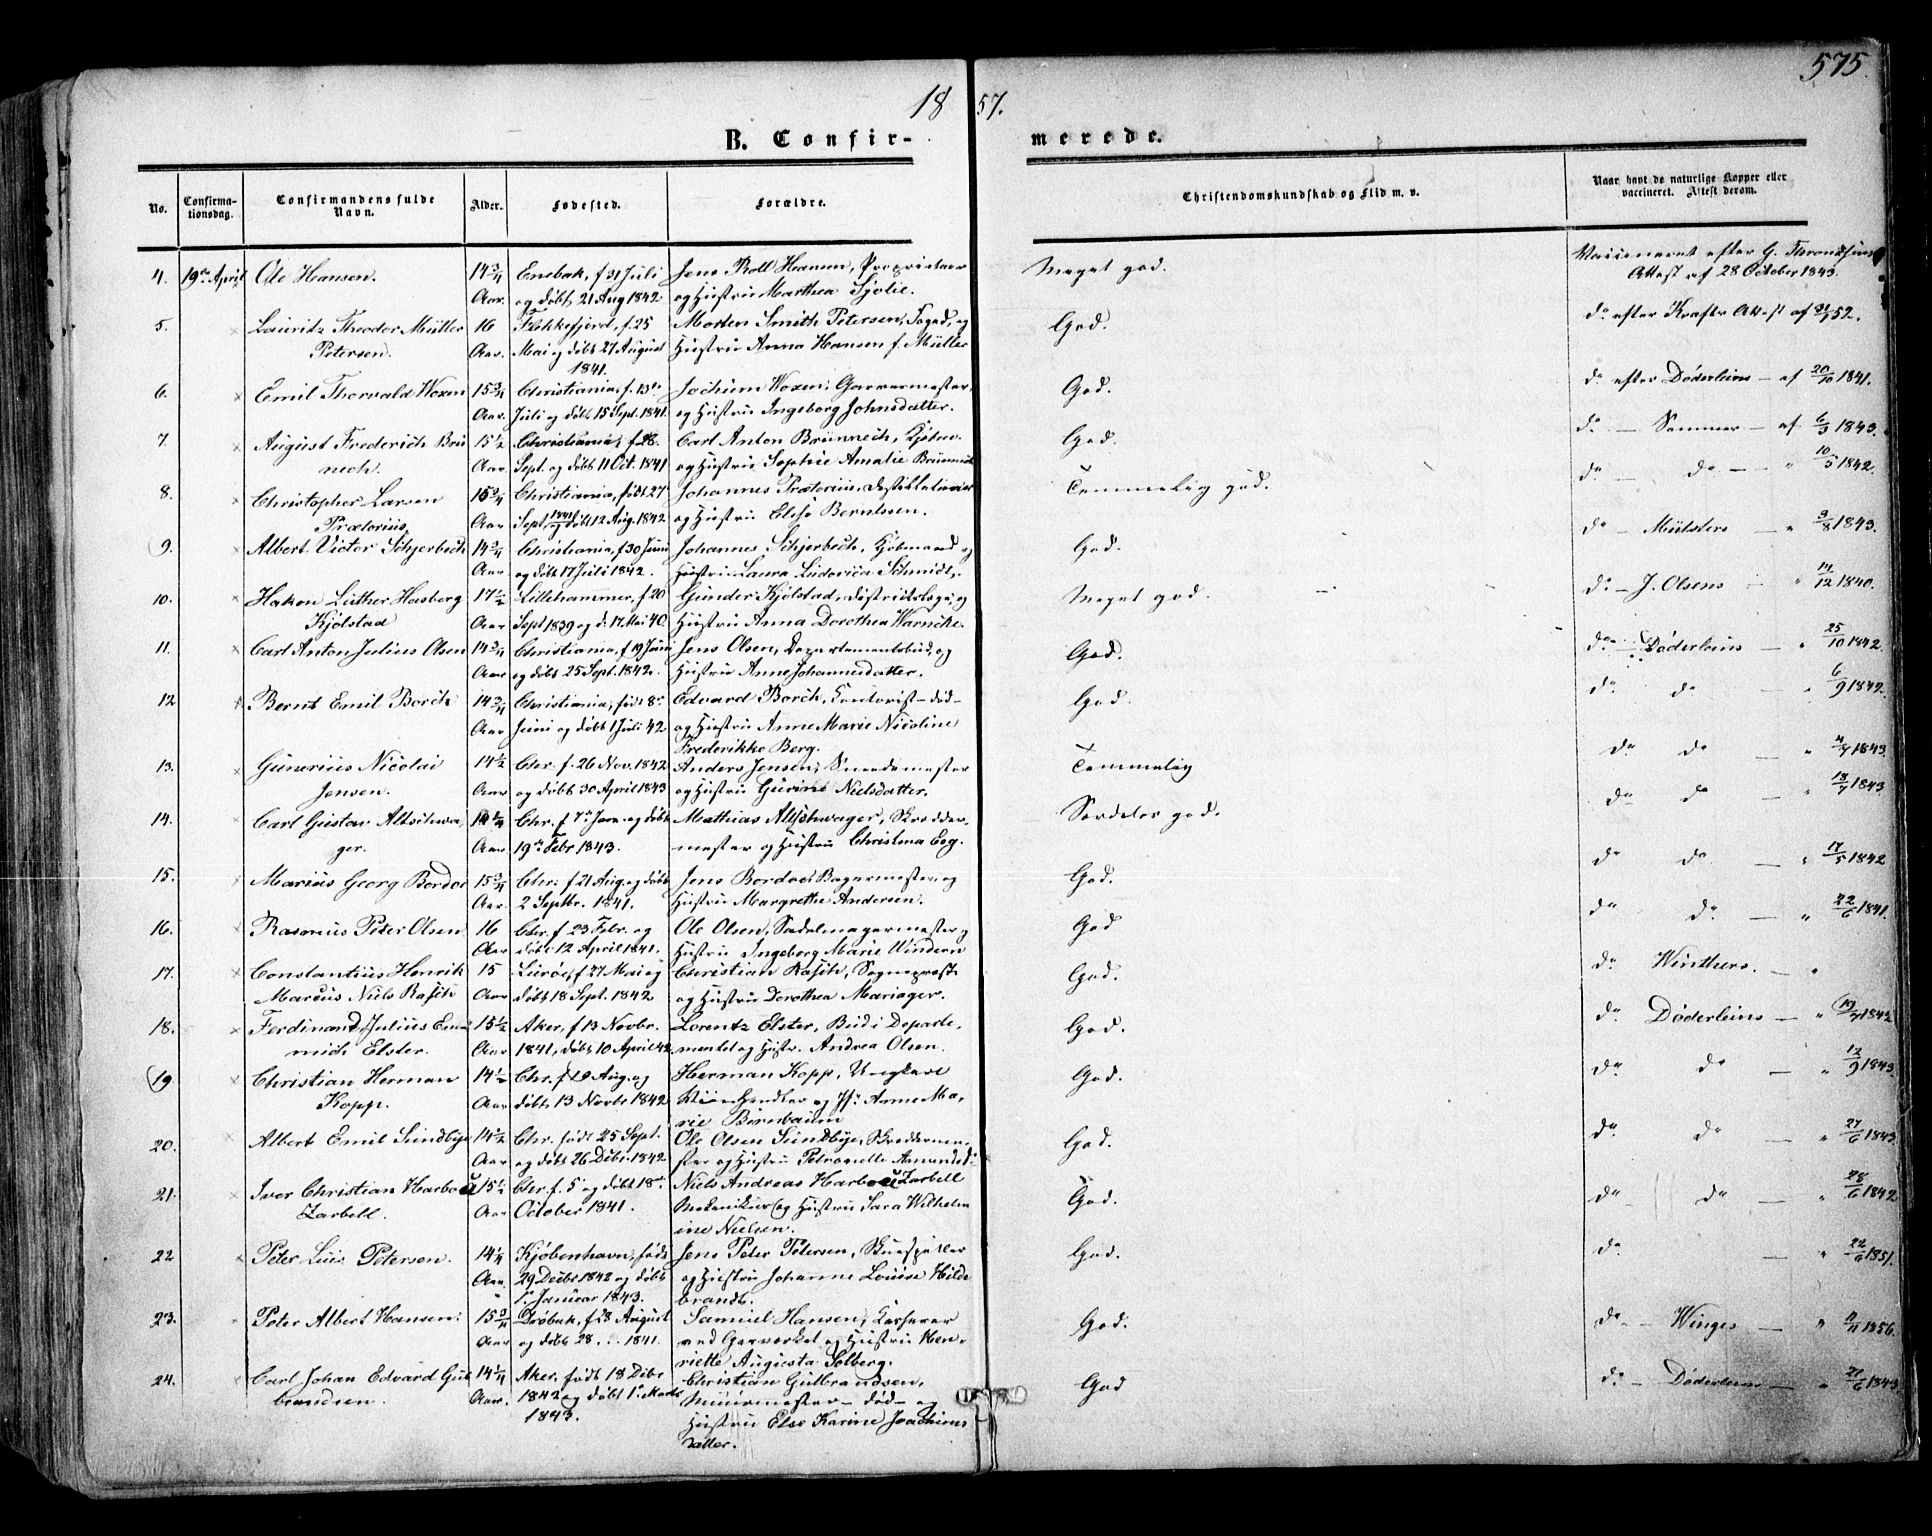 575.
18 57.
B. Confirmerede.
No. | Confirmationsdag. | Confirmandens fulde Navn. | Alder. | Fødested. | Forældre. | Christendomskundskab og Flid m. v. | Naar havt de naturlige Kopper eller vaccineret. Attest derom.
4. 19de April Ole Hansen. 14 3/4 Enebak, f. 31 Juli Jens Roll Hansen, Proprietær Meget god. Vaccineret efter G. Throndsens
Aar. og døbt 21 Aug 1842 og Hustru Marthea Sjølie. Attest af 28 October 1843.
5. Lauritz Theodor Müller 16 Flekkefjord, f. 25 Morten Smith Petersen, Foged, og God. do efter Krafts Attest af 52.
Petersen. Aar. Mai og døbt 27 August Hustru Anna Hansen f. Müller
1841.
6. Emil Thorvald Woxen 15 3/4 Christiania, f. 13de Jochum Woxen, Garvermester, God. do efter Døderleins — af 20/10 1841.
Aar. Juli og døbt 15 Sept. 1841. og Hustru Ingeborg Johnsdatter.
7. August Frederich Brü 15 1/2 Christiania, f. 28. Carl Anton Brünnech, God. do — Sommer — af 6/3 1843.
nech. Aar. Sept. og døbt 11 Oct. 1841 og Hustru Sophie Amalie Brünnech
8. Christopher Larsen 15 3/4 Christiania, født 27 Johannes Prætorius, Destillateur Temmelig god. do — do — " 10/5 1842.
Prætorius. Aar Sept 1841 og døbt 12 Aug. 1842 og Hustru Elise Berntsen.
9. Albert Victor Schjerbech 14 3/4 Christiania, f. 30 Juni Johannes Schjerbech, Kjøbmand og God. do — Mülsters — " 3/8 1843.
Aar. og døbt 17 Juli 1842. Hustru Laura Ludovica Schmidt.
10. Hakon Luther Hasberg 17 1/2 Lillehammer, f. 20 Gunder Kjølstad, Districtslæge, og Meget god. do — J. Olsens " 14/12 1840.
Kjølstad Aar Sept 1839 og d. 17. Mai 40. Hustru Anna Dorothea Warncke.
11. Carl Anton Julius Olsen 14 3/4 Christiania, f. 19 Juni Jens Olsen, Departementsbud, og God. do — Døderleins — " 25/10 1842.
Aar og døbt 25 Sept. 1842. Hustru Anne Johannesdatter.
12 Bernt Emil Borch 14 3/4 Christiania, født 8de Edvard Borch, Contorist — død — God. do do — " 6/9 1842.
Aar Juni og døbt 1 Juli 42 og Hustru Anne Marie Nicoline
Frederikke Berg.
13. Gunerius Nicolai 14 1/2 Chr. f. 26 Nov. 1842 Anders Jensen, Smedemester Temmelig do do — " 1843.
Jensen. Aar. og døbt 30 April 1843 og Hustru Gurine Nielsdatter.
14. Carl Gustav Altschwa, 14 1/4 Chr. f 7de Jan. og døbt Mathias Altschwager, Skrædder- Særdeles god. do do — " 18/7 1843
ger. Aar. 19de Febr 1843. mester og Hustru Christina Eeg.
15. Marius Georg Bordoe 15 3/4 Chr. f. 21 Aug. og døbt Jens Bordoe, Bagermester, og God. do do — " 17/5 1842
Aar. 2 Septbr. 1841. Hustru Margrethe Andersen.
16. Rasmus Peter Olsen 16 Chr. f. 23 Febr. og Ole Olsen, Sadelmagermester og God do do. — " 22/6 1841.
Aar døbt 12 April 1841. Hustru Ingeborg Marie Wimdern
17. Constantius Henrik 15 Lurøe, f. 27 Mai og Christian Rasch, Sogneprest God. do Winthers. — "
Marcus Niels Rasch Aar døbt 18 Sept. 1842. og Hustru Dorothea Mariager.
18. Ferdinand Julius Em 15 1/2 Aker, f. 13 Novbr. Lorentz Elster, Bud i Departe, God. do Døderleins — " 1842
mich Elster. Aar 1841, døbt 10 April 42 mentet og Hustr. Andrea Olsen.
19 Christian Herman 14 1/2 Chr. f. 29 Aug. og Herman Kopp, God. do do — " 12/9 1843.
Kopp. Aar. døbt 13 Novbr 1842 og Hr. Anne Ma,
rie Birnbaum
20. Albert Emil Sundbye 14 1/2 Chr. født 25 Sept. Ole Olsen Sundbye, Skræddermes, God. do do — " 27/6 1843.
Aar og døbt 26 Debr. 1842 ter og Hustru Petronelle Amundsd.
21. Iver Christian Harboe 15 1/2 Chr. f. 5 og døbt 18de Niels Andreas Harboe Zarbell God. do do — " 28/6 1842
Zarbell. Aar October 1841. Mekanikus og Hustru Sara Wilhelm
ine Nielsen.
22 Peter Luis Petersen. 14 1/4 Kjøbenhavn, født Jens Peter Petersen, Skuespiller God. do — " 22/6 1851.
Aar. 29 Decbr 1842 og døbt og Hustru Johanne Louise Hilde
1. Januar 1843. brandt.
23. Peter Albert Hansen. 15 3/4 Drøbak, f. 28 August Samuel Hansen, Kasserer God. do — Winges — " 1856.
Aar. og døbt 28 ... 1841. ved Gasverket og Hustru Hen,
riette Augusta Solberg.
24. Carl Johan Edvard Gul 14 1/4 Aker, født 18 Debr Christian Gulbrandsen, God do — Døderleins — " 27/6 1843
brandsen. Aar. 1842 og døbt 1. Marts Muurmester — død — og
1843. Hustru Else Karine Joachims
datter.